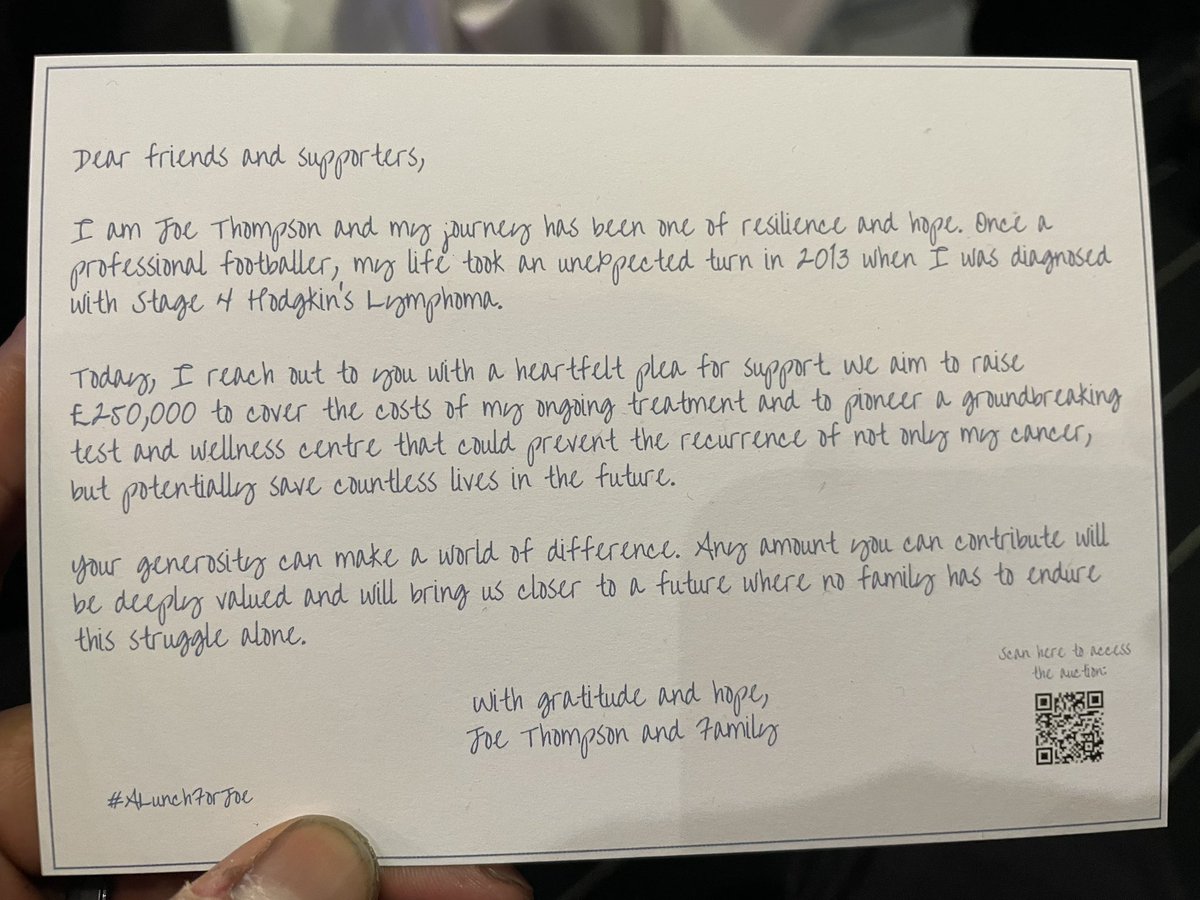 Dear friends and supporters,
I am Joe Thompson and my journey has been one of resilience and hope. Once a
professional footballer, my life took an unexpected turn in 2013 when I was diagnosed
with Stage 4 Hodgkin's Lymphoma.
Today, I reach out to you with a heartfelt plea for support. We aim to raise
£250,000 to cover the costs of my ongoing treatment and to pioneer a groundbreaking
test and wellness centre that could prevent the recurrence of not only my cancer,
but potentially save countless lives in the future.
Your generosity can make a world of difference. Any amount you can contribute will
be deeply valued and will bring us closer to a future where no family has to endure
this struggle alone.
With gratitude and hope,
Joe Thompson and Family
Scan here to access
the auction:
#ALunchForJoe